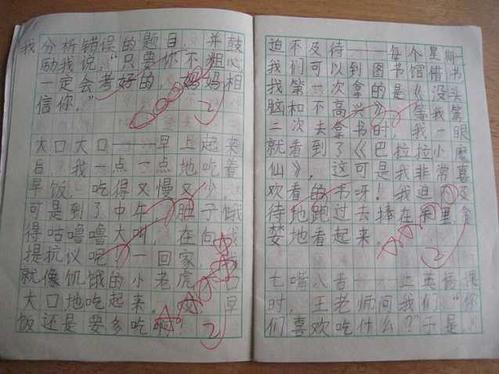 我分析错误的题目，并鼓
励我说，“只要你不粗心
一定会考好的，妈妈相
信你。”
大口大口——早上起来
我一点一点地吃着
早饭，吃得又慢又少
可是到了中午，肚子饿
得咕噜噜大叫，在向我
提抗议吧？一回家
就像饥饿的小老虎
大口地吃起来，早
饭还是要多吃啊
迫不及待——每个星期
我们可以到图书馆借书
我第一次拿的是《没头
脑和不高兴》，等我第
二次去拿书时，我一眼
就看到了《巴拉拉小魔
仙》，这可是我非常喜
欢看的书呀！我迫不及
待地跑过去捧在手里
地看起来。
七嘴八舌——上英语课
时，王老师问我们：“你
们喜欢吃什么？”于是